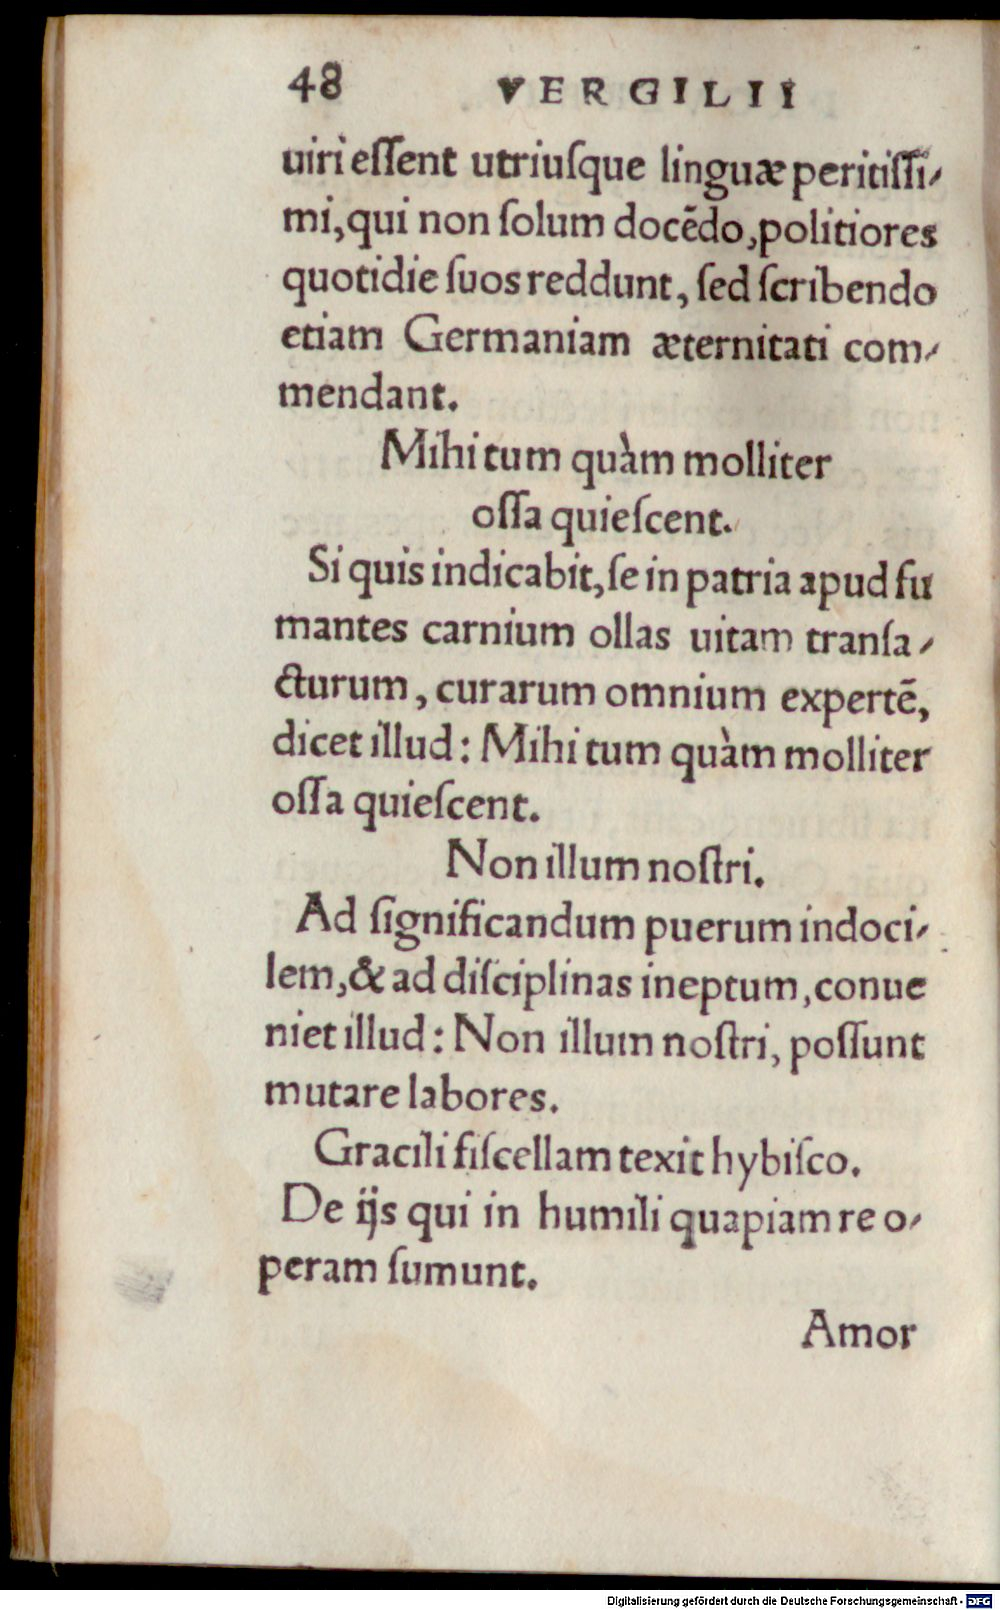 48 VERGILII
uiri eſſent utriuſque linguæ peritiſſi-
mi, qui non ſolum docēdo, politiores
quotidie ſuos reddunt, ſed ſcribendo
etiam Germaniam æternitati com-
mendant.
Mihi tum quàm molliter
oſſa quieſcent.
Si quis indicabit, ſe in patria apud fu
mantes carnium ollas uitam tranſa-
cturum, curarum omnium expertē,
dicet illud: Mihi tum quàm molliter
oſſa quieſcent.
Non illum noſtri.
Ad ſignificandum puerum indoci-
lem, & ad diſciplinas ineptum, conue
niet illud: Non illum noſtri, poſſunt
mutare labores.
Gracili fiſcellam texit hybiſco.
De ijs qui in humili quapiam re o-
peram ſumunt.
Amor
Digitalisierung gefördert durch die Deutsche Forschungsgemeinschaft - DFG